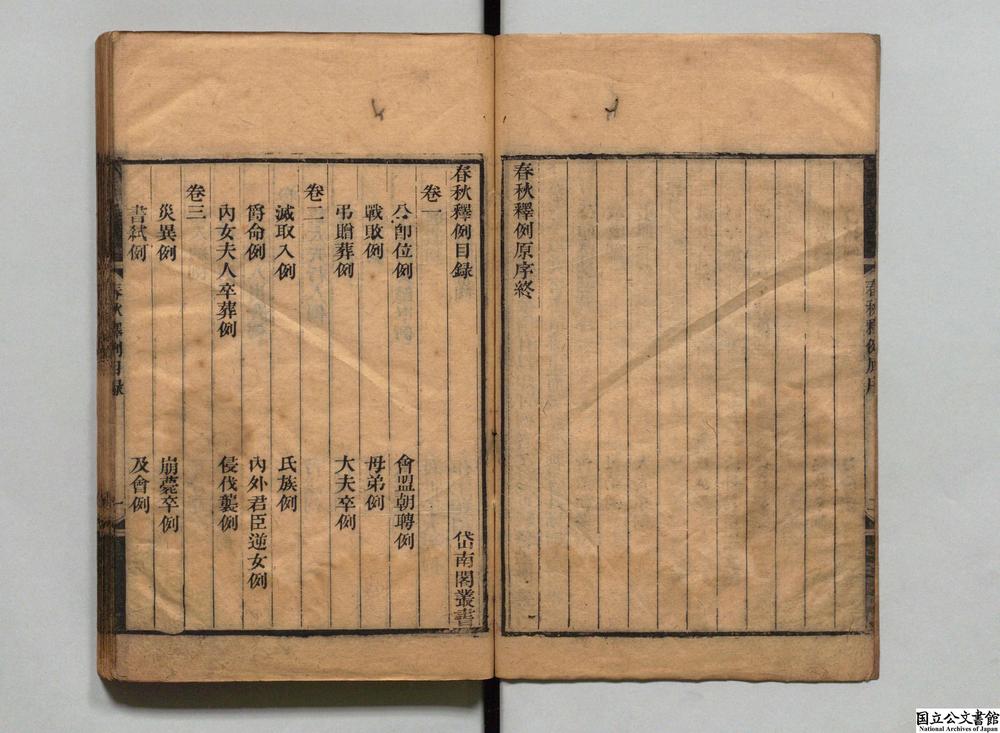 春秋釋例原序終
春秋釋例目録
岱南閣叢書
卷一
公即位例
會盟朝聘例
戰敗例
母弟例
弔贈葬例
大夫卒例
卷二
滅取入例
氏族例
爵命例
內外君臣逆女例
內女夫人卒葬例
侵伐襲例
卷三
災異例
崩薨卒例
書弒例
及會例
春秋釋例目録
一
国立公文書館
National Archives of Japan